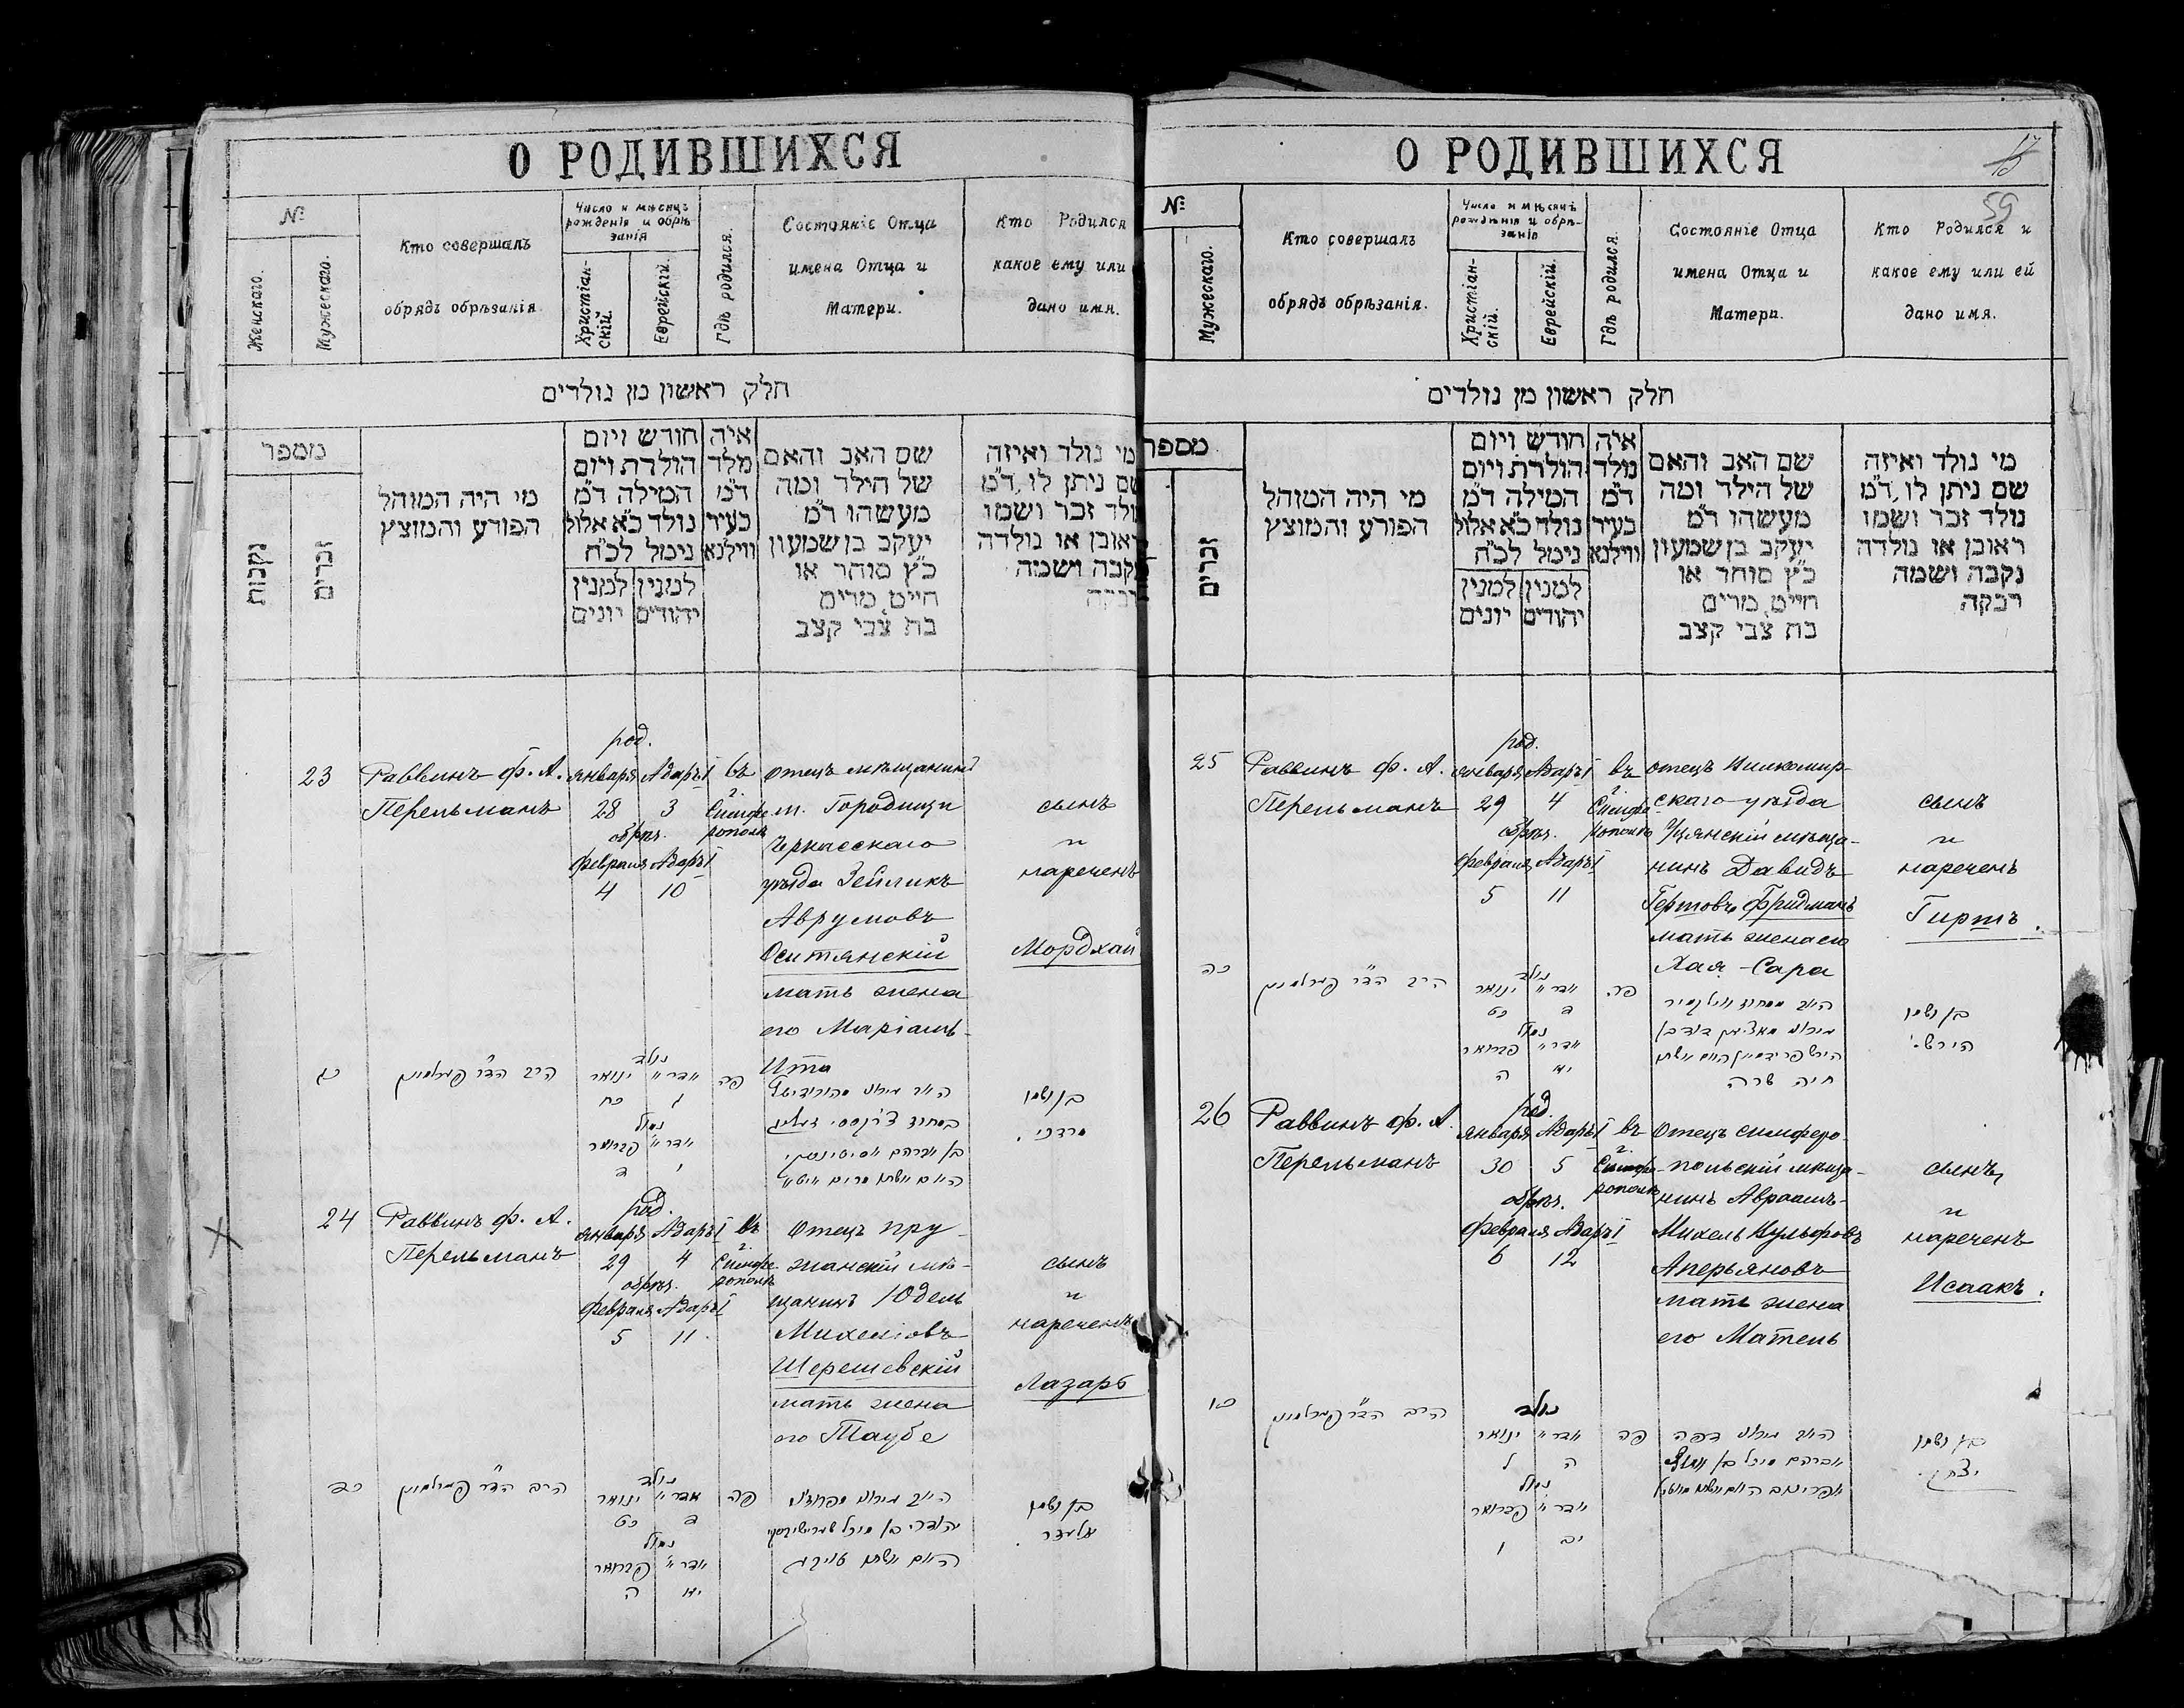 О РОДИВШИХСЯ
№
Женскаго.
Мужескаго.
Кто совершалъ
обрядъ обрѣзанія
Число и мѣсяцъ
рожденія и обрѣ
занія
Христіан-
скій.
Еврейскій.
Гдѣ родился.
Состояніе Отца
имена Отца и
Матери.
Кто Родился
какое ему или
дано имя.
חלק ראשון מן נולדים
מספר
נקבות
זכרים
מי היה המוהל
הפורע והמוצץ
חודש ויום
הולדת ויום
המילה ד"מ
נולד כ"א אלול
נימל לכ"ח
למנין
יהודים
למנין
יונים
איה
מלד
ד"מ
בעיר
ווילנא
שם האב והאם
של הילד ומה
מעשהו ד"מ
יעקב בן שמעון
כ"ץ סוחר או
חייט, מרים
בת צבי קצב
מי נולד ואיזה
שם ניתן לו, ד"מ
נולד זכר ושמו
ראובן או נולדה
נקבה ושמה
רבקה
23
Раввинъ Ф. А.
Перельманъ
род.
января Адаръ I
28 3
обрѣз.
февраля Адаръ I
4 10
въ
г.
Симфе-
рополѣ
отецъ мѣщанинъ
м. Городищи
Черкасскаго
уѣзда Зейликъ
Аврумовъ
Оситянскій
мать жена
его Маріамъ-
Ита
сынъ
и
нареченъ
Мордхай
כג
הרב הד"ר פערלמאן
נולד
אדר א' ינואר
ג כח
נמול
אדר א' פברואר
י ד
פה
בן ושמו
מרדכי.
24
Раввинъ Ф. А.
Перельманъ
род.
января Адаръ I
29 4
обрѣз.
февраля Адаръ I
5 11
въ
г.
Симфе-
рополѣ
Отецъ пру-
жанскій мѣ-
щанинъ Юдель
Михелiовъ
Шерешевскій
мать жена
его Таубе
сынъ
и
нареченъ
Лазарь
כד
הרב הד"ר פערלמאן
נולד
אדר א' ינואר
ד כט
נמול
אדר א' פברואר
יא ה
פה
בן ושמו
אלעזר.
О РОДИВШИХСЯ
17
59
№
Мужескаго.
Кто совершалъ
обрядъ обрѣзанія.
Число и мѣсяцъ
рожденія и обрѣ-
занія
Христіан-
скій.
Еврейскій.
Гдѣ родился.
Состояніе Отца
имена Отца и
Матери.
Кто Родился и
какое ему или ей
дано имя.
חלק ראשון מן נולדים
מספר
זכרים
מי היה המוהל
הפורע והמוצץ
חודש ויום
הולדת ויום
המילה ד"מ
נולד כ"א אלול
נימל לכ"ח
למנין
יהודים
למנין
יונים
איה
נולד
ד"מ
בעיר
ווילנא
שם האב והאם
של הילד ומה
מעשהו ד"מ
יעקב בן שמעון
כ"ץ סוחר או
חייט, מרים
בת צבי קצב
מי נולד ואיזה
שם ניתן לו, ד"מ
נולד זכר ושמו
ראובן או נולדה
נקבה ושמה
רבקה
25
Раввинъ Ф. А.
Перельманъ
род.
января Адаръ I
29 4
обрѣз.
февраля Адаръ I
5 11
въ
г.
Симфе-
рополѣ
отецъ Вилкомир-
скаго уѣзда
Уцянскій мѣща-
нинъ Давидъ
Гертовъ Фридманъ
мать жена его
Хая-Сара
сынъ
и
нареченъ
Гиртъ.
כה
הרב הד"ר פערלמאן
נולד
אדר א' ינואר
ד כט
נמול
אדר א' פברואר
יא ה
פה
חיה שרה
בן ושמו
הירש.
26
Раввинъ Ф. А.
Перельманъ
род.
января Адаръ I
30 5
обрѣз.
февраля Адаръ I
6 12
въ
г.
Симфе-
рополѣ
Отецъ симферо-
польскій мѣща-
нинъ Авраамъ-
Михель Вульфовъ
Аперьяновъ
мать жена
его Матель
сынъ
и
нареченъ
Исаакъ.
כו
הרב הד"ר פערלמאן
נולד
אדר א' ינואר
ה ל
נמול
אדר א' פברואר
יב ו
פה
בן ושמו
יצחק.